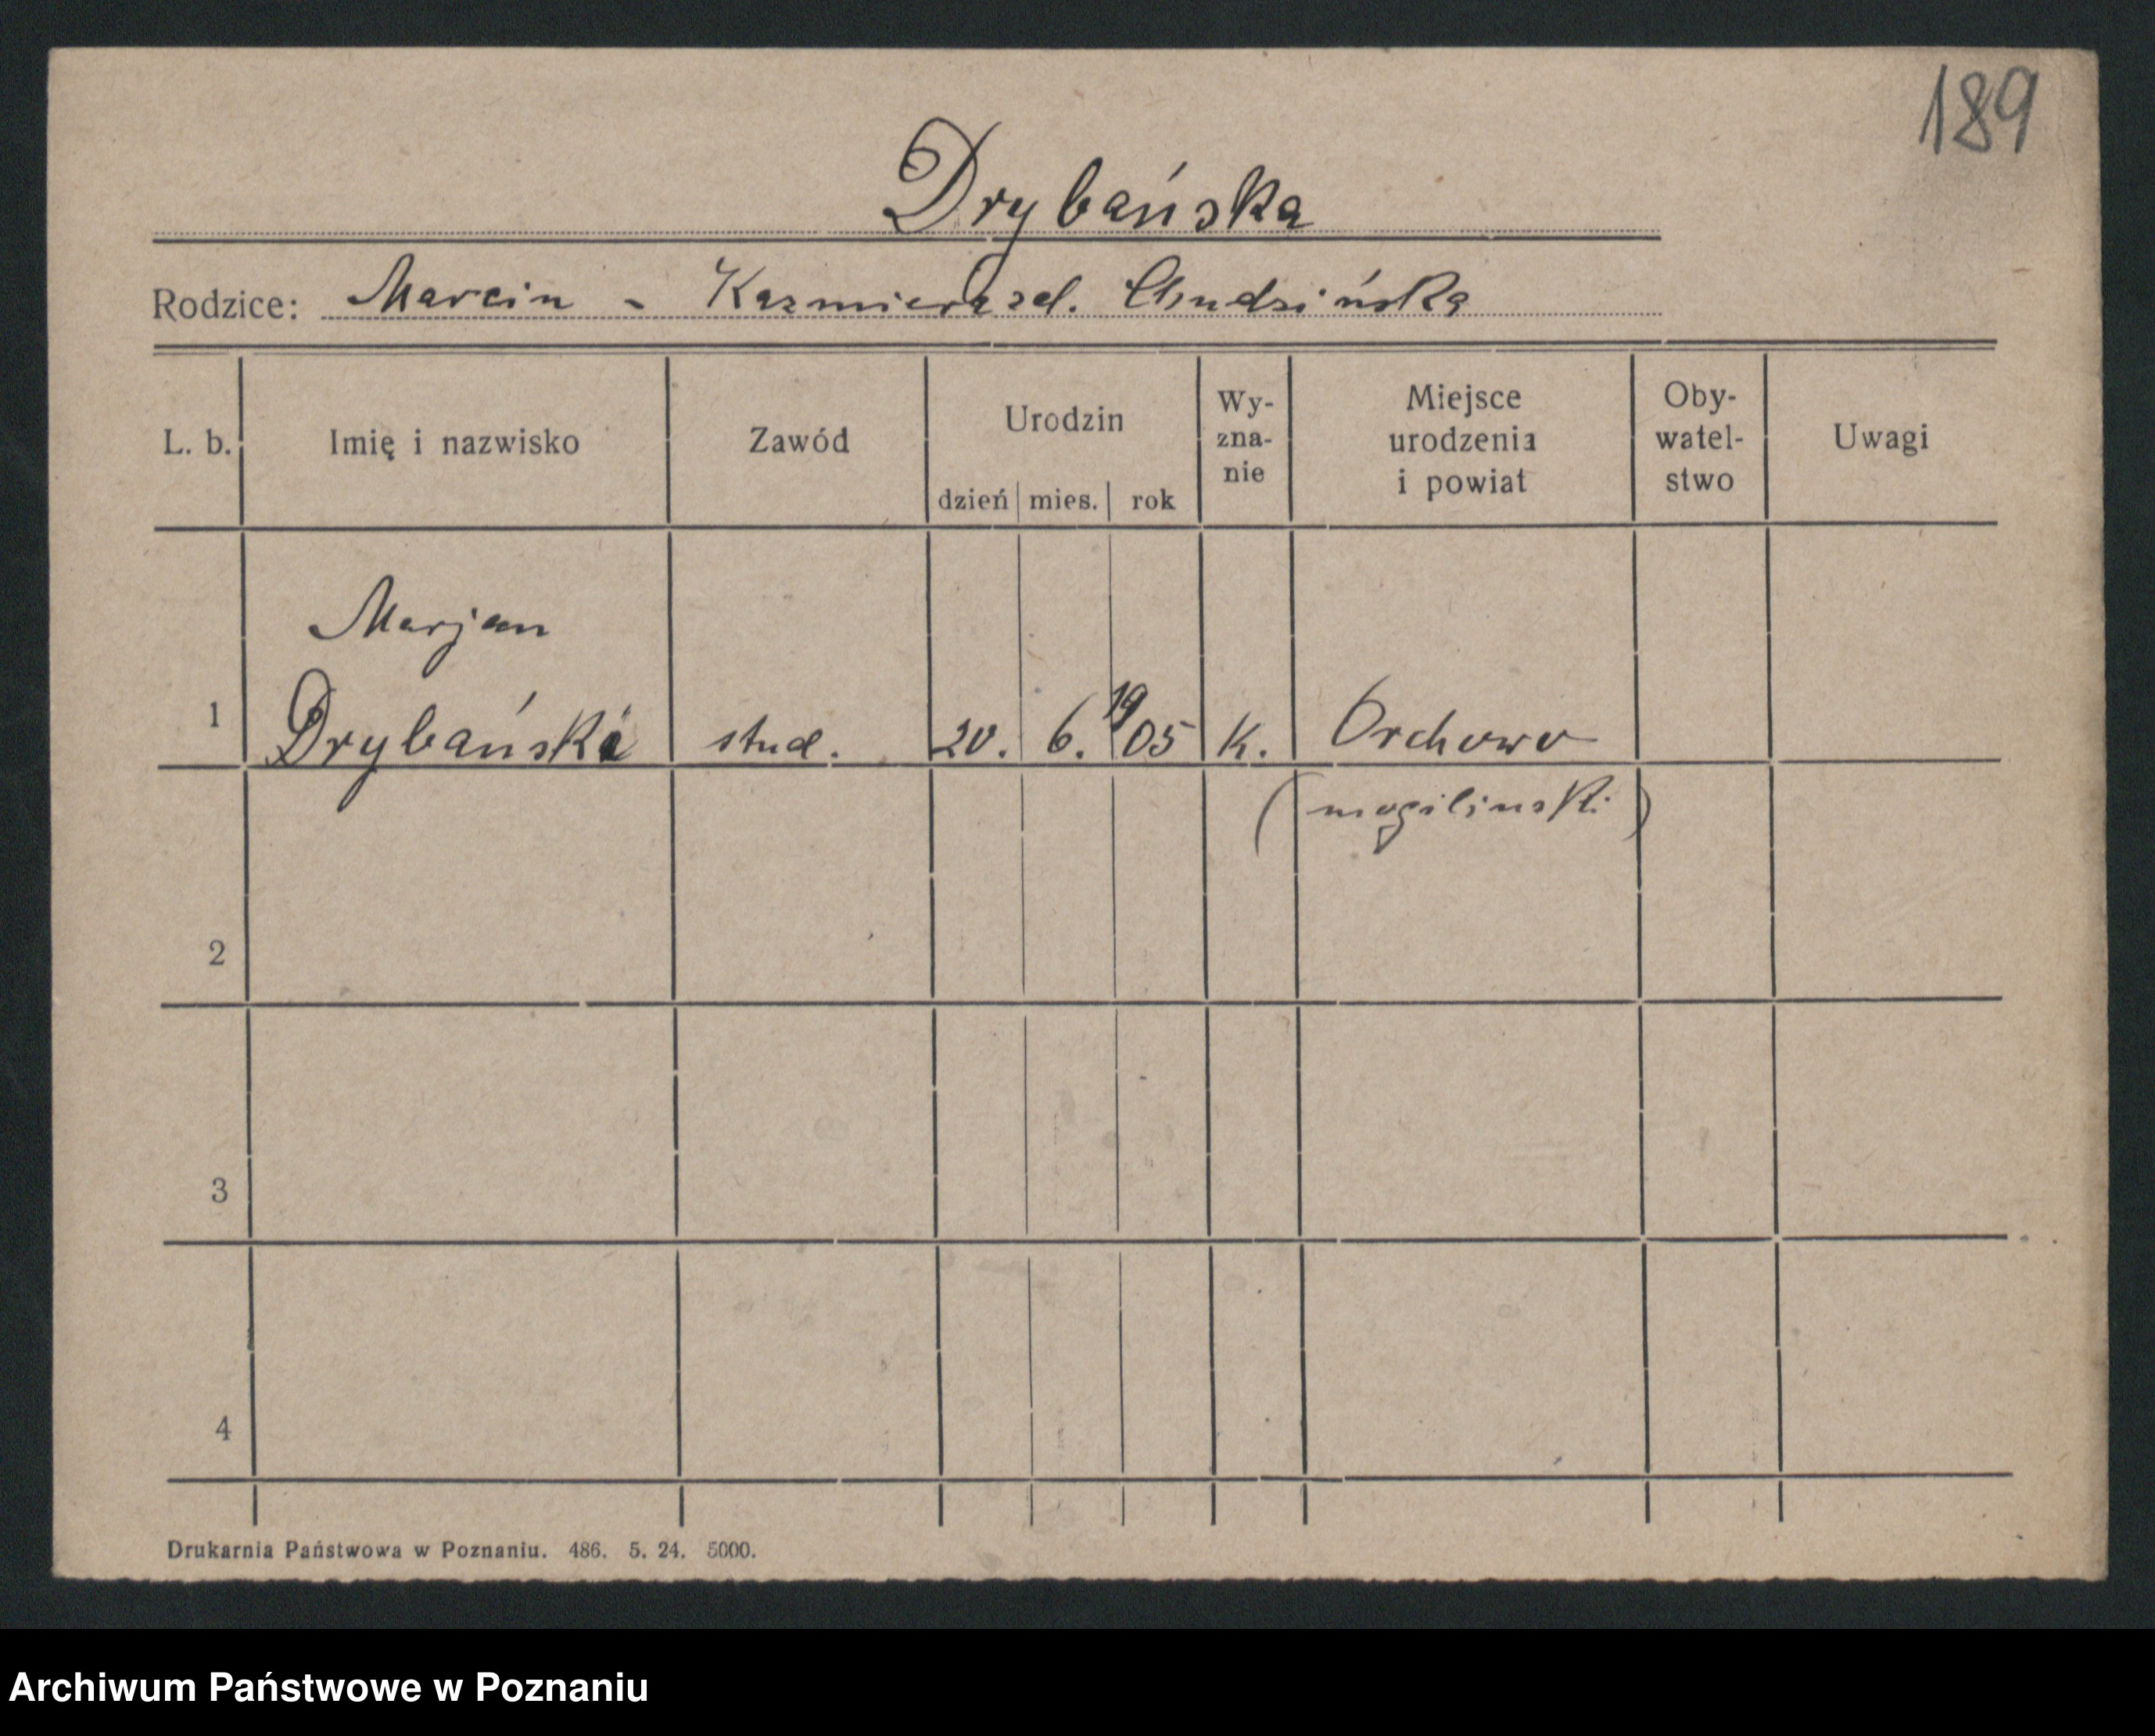 189
Drybańska
Rodzice: Marcin - Kazmiera zd. Chudzińska
L. b. Imię i nazwisko Zawód Urodzin dzień mies. rok Wy-zna-nie Miejsce urodzenia i powiat Oby-watel-stwo Uwagi
Marjan
1 Drybański stud. 20. 6. 1905 K. Orchowo
(mogilinski)
2
3
4
Drukarnia Państwowa w Poznaniu. 486. 5. 24. 5000.
Archiwum Państwowe w Poznaniu